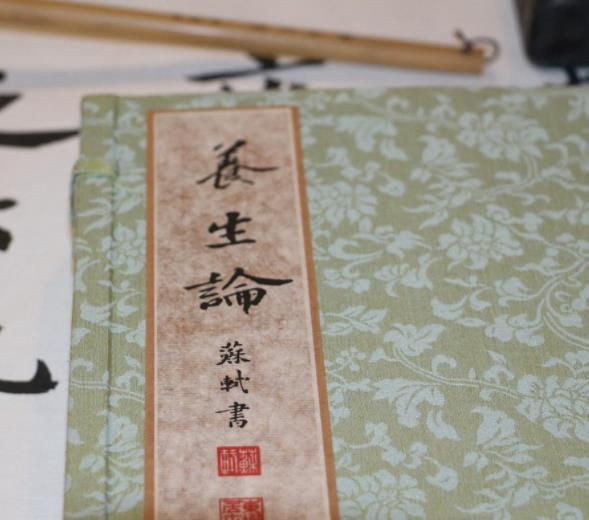 養生論
蘇軾書